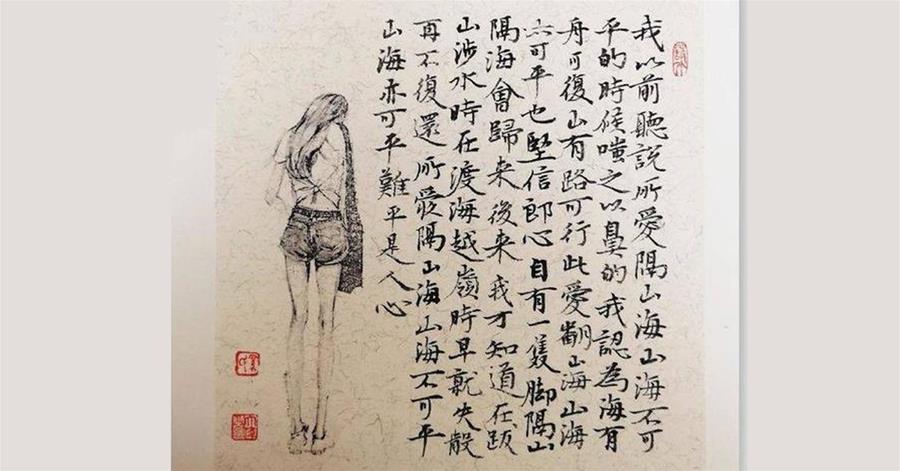 我以前聽說所愛隔山海山海不可
平的時候嗤之以鼻的我認為海有
舟可復山有路可行此愛翻山海山海
亦可平也堅信郎心自有一隻脚隔山
隔海會歸来後来我才知道在跋
山涉水時在渡海越嶺時早就失散
再不復還所愛隔山海山海不可平
山海亦可平難平是人心